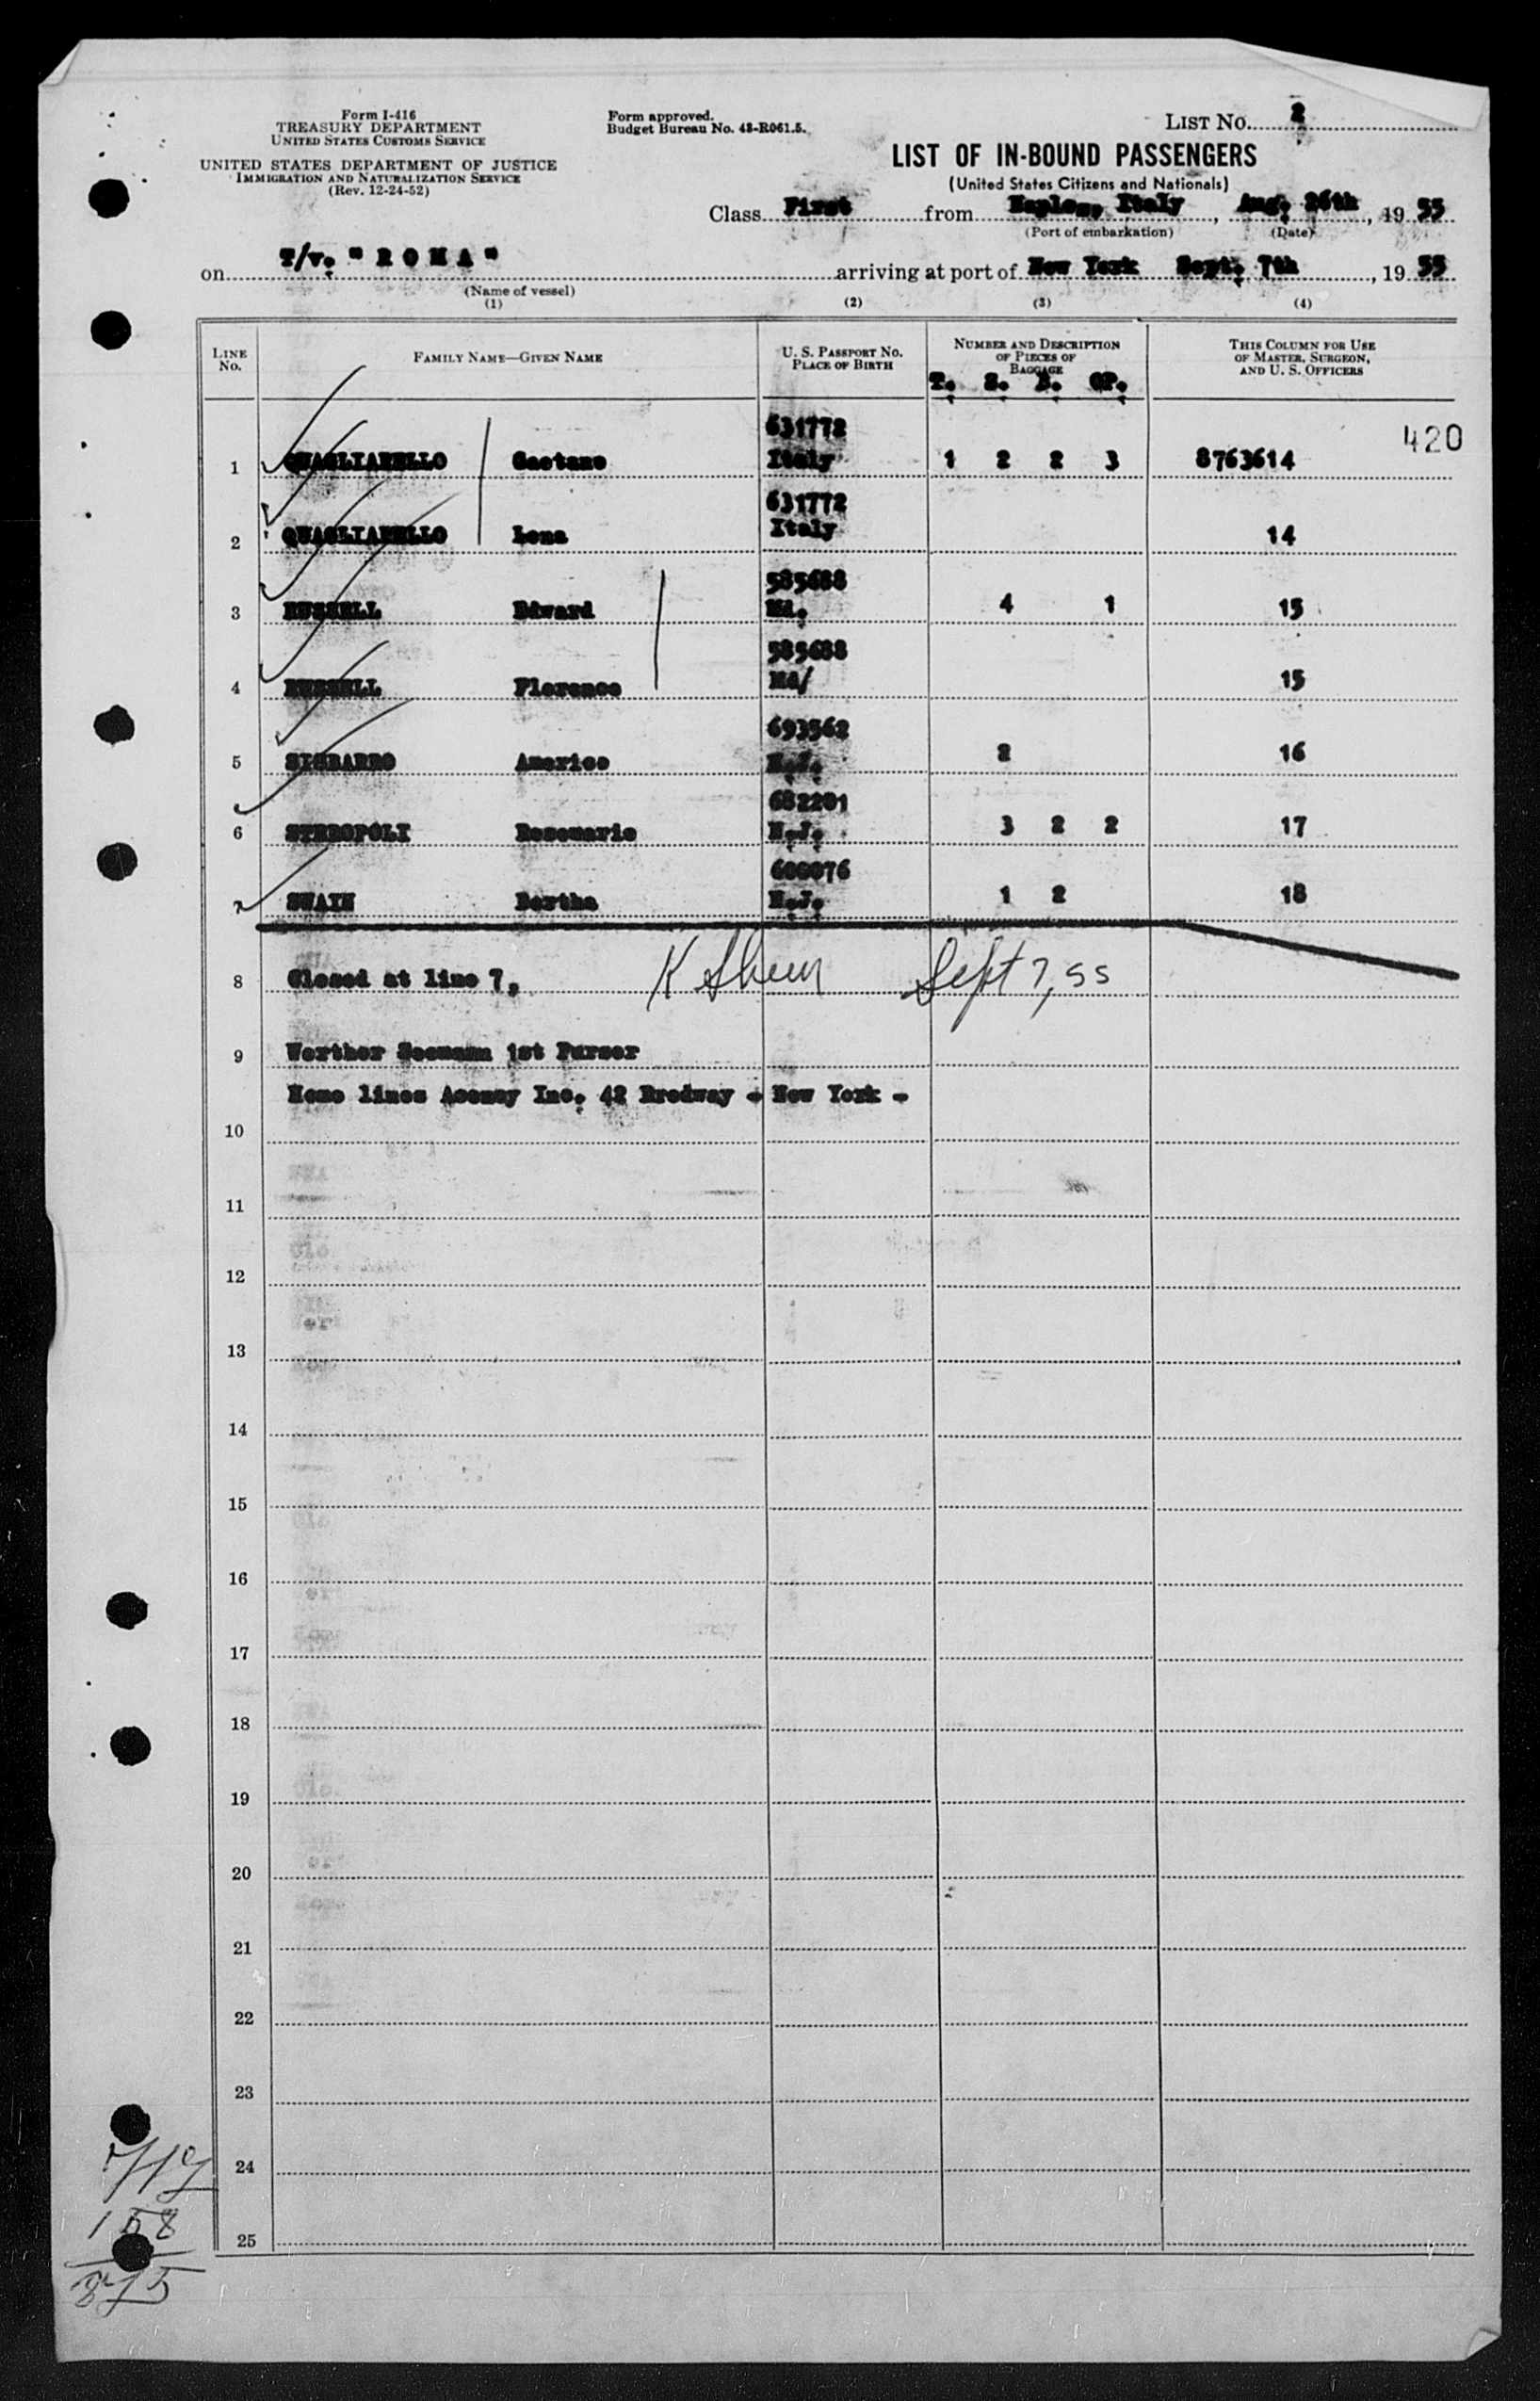 Form I-416
TREASURY DEPARTMENT
UNITED STATES CUSTOMS SERVICE
UNITED STATES DEPARTMENT OF JUSTICE
IMMIGRATION AND NATURALIZATION SERVICE
(Rev. 12-24-52)
Form approved.
Budget Bureau No. 43-R061.5.
LIST No. 2
LIST OF IN-BOUND PASSENGERS
(United States Citizens and Nationals)
Class First from Naples, Italy, Aug. 26th, 1955
(Port of embarkation) (Date)
on T/v. " R O M A " arriving at port of New York Sept. 7th, 1955
(Name of vessel)
(1) (2) (3) (4)
LINE No. FAMILY NAME—GIVEN NAME U. S. PASSPORT No. PLACE OF BIRTH NUMBER AND DESCRIPTION OF PIECES OF BAGGAGE THIS COLUMN FOR USE OF MASTER, SURGEON, AND U. S. OFFICERS
T. S. B. GP.
420
631772
1 QUAGLIARELLO Gaetano Italy 1 2 2 3 8763614
631772
2 QUAGLIARELLO Lena Italy 14
585688
3 RUSSELL Edward Md. 4 1 15
585688
4 RUSSELL Florence Md/ 15
693562
5 Americo N.J. 2 16
682201
6 STEROPOLI Rosemarie N.J. 3 2 2 17
600076
7 SWAIN Bertha N.J. 1 2 18
8 Closed at line 7, K Sept 7, 55
9 Werther Seemann 1st Purser
Home lines Agency Inc. 42 Brodway - New York -
10
11
12
13
14
15
16
17
18
19
20
21
22
23
24
25
717
158
875